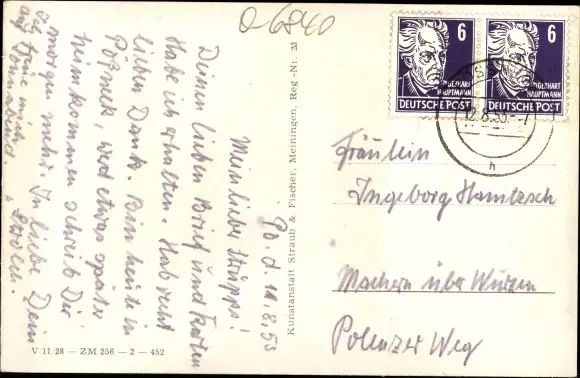 O-6840
6
6
GERHART
HAUPTMANN
DEUTSCHE POST
GERHART
HAUPTMANN
DEUTSCHE POST
12.8.53.-7
h
Pö. d. 11.8.53
Meine liebe Struppi!
Deinen lieben Brief und Karten
Habe ich erhalten. Hab recht
lieben Dank. Bin heute in
Pößneck, werd etwas später
heimkommen schreib Dir
morgen mehr. In Liebe Dein
Strolch.
Ich freue mich
auf Sonnabend.
Kunstanstalt Straub & Fischer, Meiningen, Reg.-Nr. 23
Fräulein
Ingeborg Hantzsch
Machern über Wurzen
Polenzer Weg
V 11 28 — ZM 256 — 2 — 452